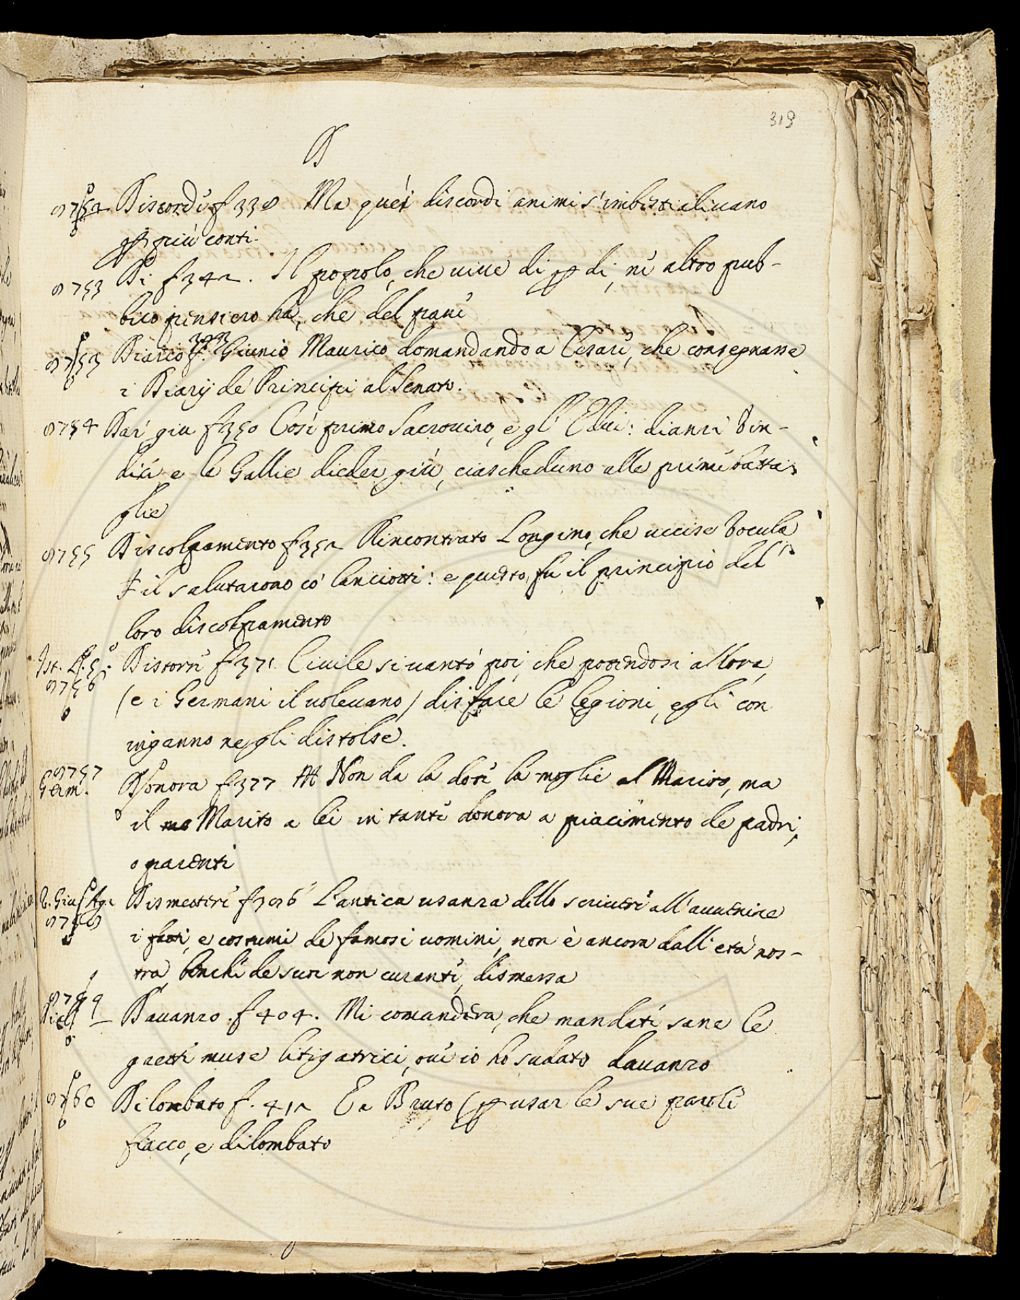 319
D
9752 Discordi f 338 Ma quei discordi animi s'imbestialivano
p più conti.
9753 Di f 342. Il popolo, che vive di p di, nè altro pub-
blico pensiero ha, che del pane
9753 Diario f. 393 Giunio Maurico domandando a Cesare, che consegnasse
i Diarij de Principi al Senato.
9754 Dar giu f 350 Così primo Sacroviro, e gl' Edui: dianzi Vin-
dice e le Gallie dieder giù, ciascheduno alle prime batta-
glie
9755 Discolpamento f 352 Rincontrato Longino, che uccise Vocula
il salutarono co' lanciotti: e questo fu il principio del
loro discolpamento
Ist. L. 5.
9756 Distorre f 371. Civile si vantò poi, che potendosi allora,
(e i Germani il volevano) disfare le legioni, egli con
inganno negli distolse.
9757
Germ. Donora f 377 Non da la dote la moglie al Marito, ma
il Marito a lei in tanti donora a piacimento de padri,
o parenti
V. Giu. Agr.
Dismettere f 396 L'antica usanza dello scrivere all'avvenire
i fatti, e costumi de famosi uomini, non è ancora dall'età nos-
tra benchè de suoi non curante, dismessa
9759
Davanzo f 404. Mi comandava, che mandate sane le
gaetti muse litigatrici, ove io ho sudato davanzo
9760 Dilombato f. 412 E a Bruto (p usar le sue parole
fiacco, e dilombato